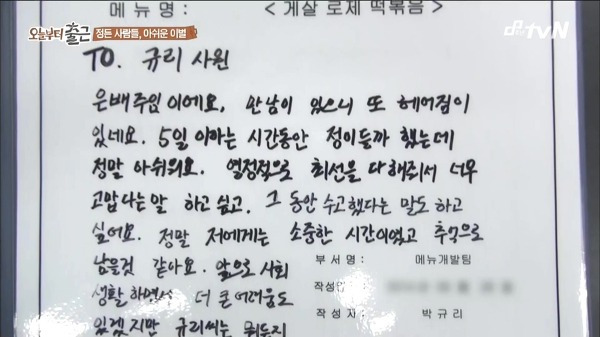 오늘부터 출근
정든 사람들, 아쉬운 이별
tvN
메뉴명 : < 게살 로제 떡볶음 >
TO. 규리 사원
은배주임이에요, 만남이 있으니 또 헤어짐이
있네요. 5일 이라는 시간동안 정이들까 했는데
정말 아쉬워요. 열정적으로 최선을 다해줘서 너무
고맙다는말 하고 싶고. 그 동안 수고했다는 말도 하고
싶어요. 정말 저에게는 소중한 시간이였고 추억으로
남을것 같아요. 앞으로 사회
생활 하면서 더 큰 어려움도
있겠지만 규리씨는 뭐든지
부 서 명 : 메뉴개발팀
작성일 :
작 성 자 : 박 규 리